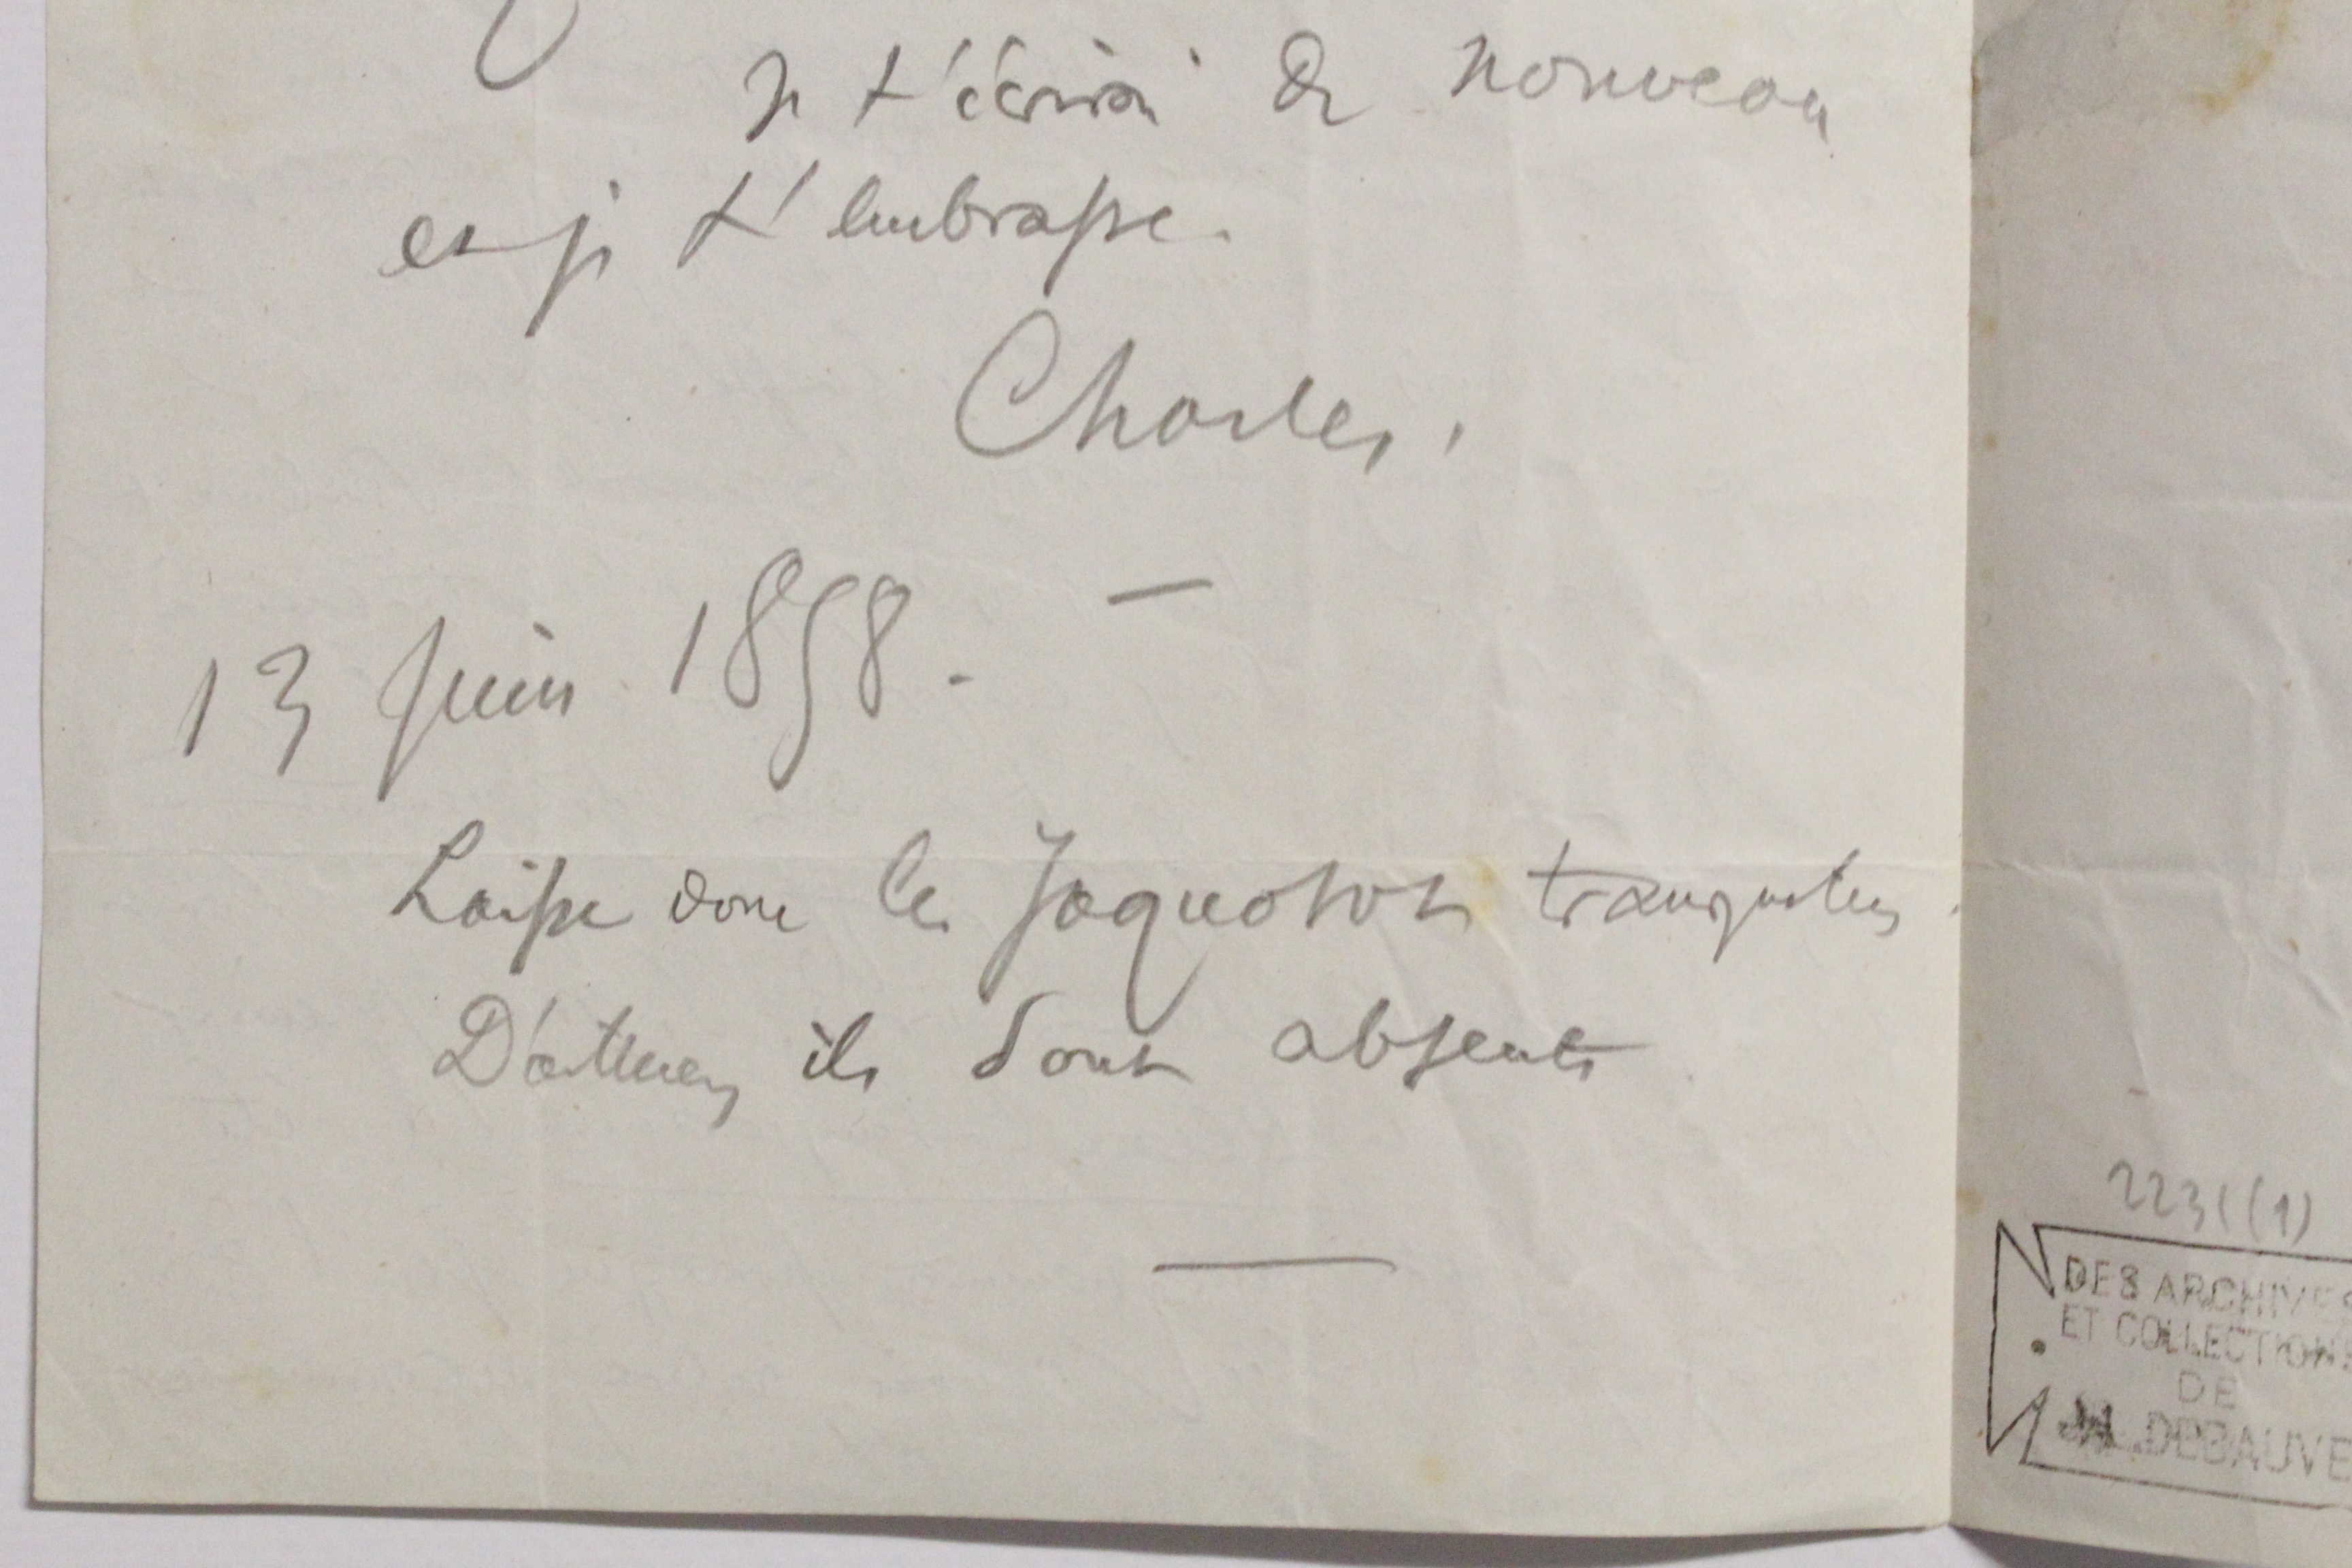 Je t'écrirai de nouveau
et je t'embrasse.
Charles.
13 Juin 1858. —
Laisse donc les Jaquotot tranquilles.
D'ailleurs ils sont absents
2231(1)
DES ARCHIVES
ET COLLECTIONS
DE
DEBAUVE